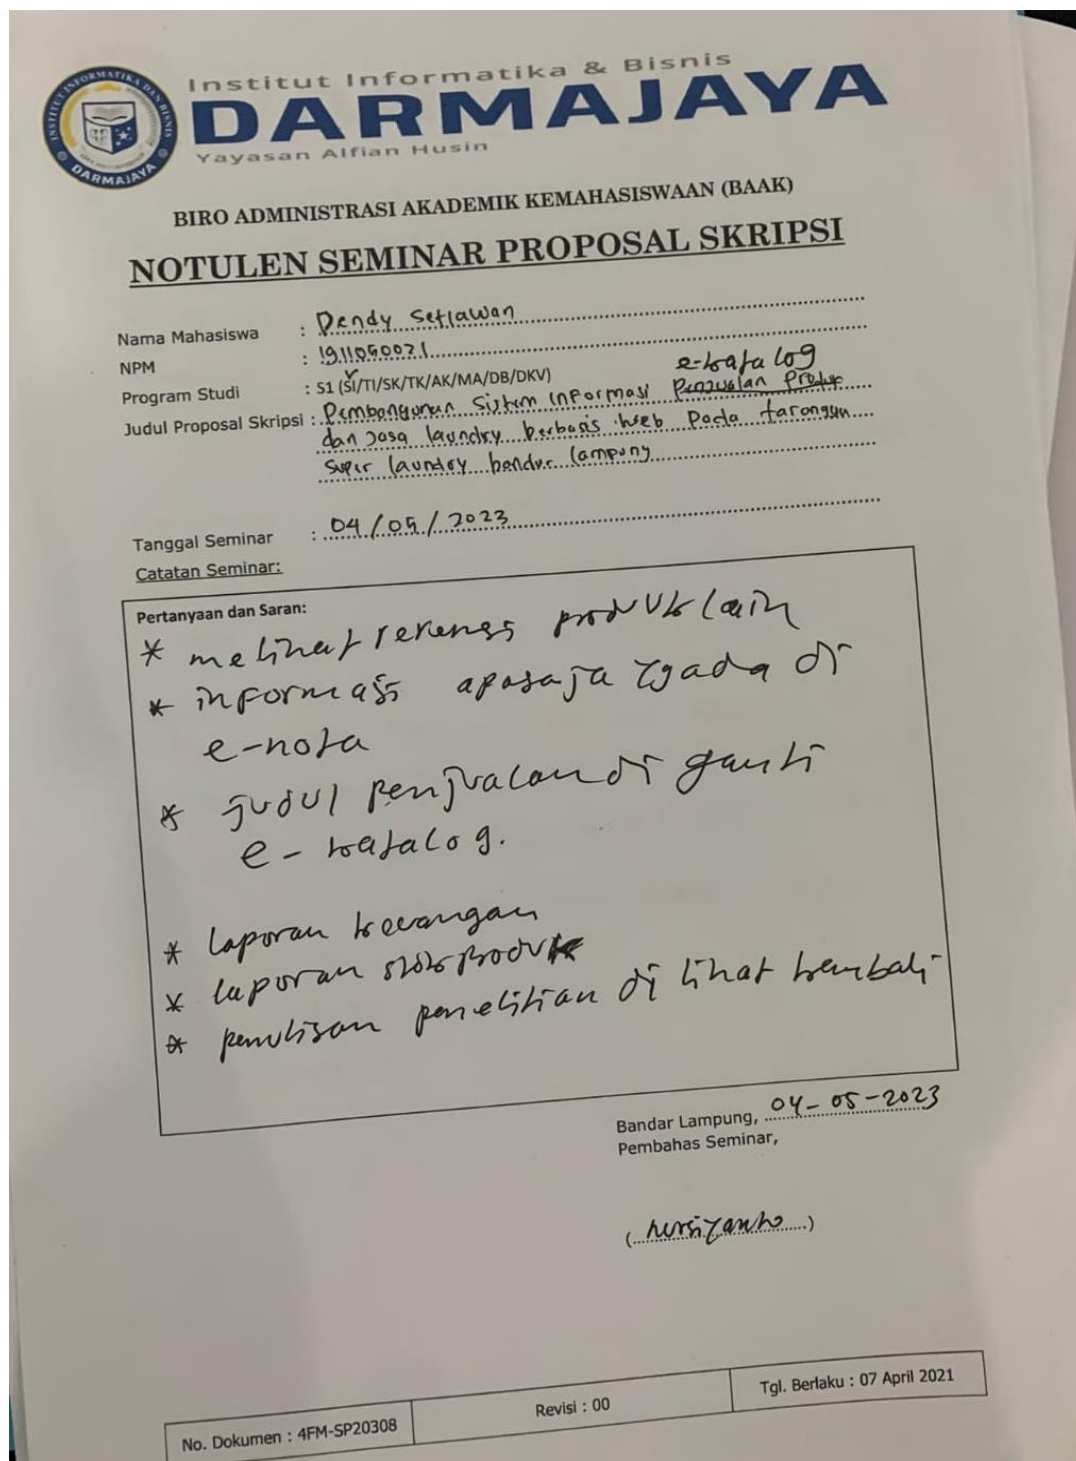 Institut Informatika & Bisnis
DARMAJAYA
Yayasan Alfian Husin
INSTITUT INFORMATIKA DAN BISNIS
DARMAJAYA
BIRO ADMINISTRASI AKADEMIK KEMAHASISWAAN (BAAK)
NOTULEN SEMINAR PROPOSAL SKRIPSI
Nama Mahasiswa : Dendy Setiawan
NPM : 1911050021
e-katalog
Program Studi : S1 (SI/TI/SK/TK/AK/MA/DB/DKV)
Judul Proposal Skripsi : Pembangunan Sistem Informasi Penjualan Produk
dan Jasa laundry berbasis Web Pada
Super laundry bandar lampung
Tanggal Seminar : 04/05/2023
Catatan Seminar:
Pertanyaan dan Saran:
* melihat produk lain
* informasi apasaja yg ada di
e-nota
* judul penjualan di ganti
e-katalog.
* laporan keuangan
* laporan stok produk
* penulisan penelitian di lihat kembali
Bandar Lampung, 04-05-2023
Pembahas Seminar,
(nursiyanto)
No. Dokumen : 4FM-SP20308
Revisi : 00
Tgl. Berlaku : 07 April 2021